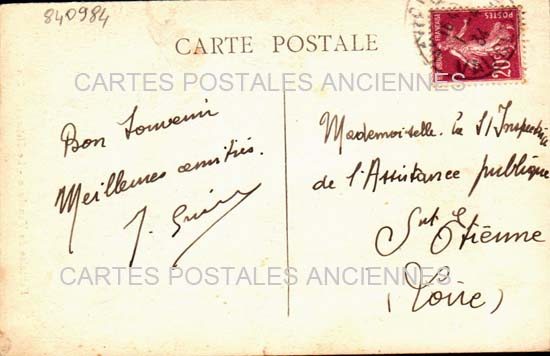 840984
CARTE POSTALE
CARTES POSTALES ANCIENNES
Bon Souvenir
Meilleures amitiés.
J.
Mademoiselle la S/Inspectrice
de l'Assistance publique
St Etienne
(Loire)
20c
CARTES POSTALES ANCIENNES